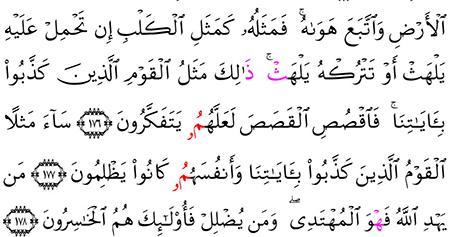 اَ۬لْأَرْضِ وَاَتَّبَعَ هَوَىٰهُۚ فَمَثَلُهُۥ كَمَثَلِ اِ۬لْكَلْبِ إِن تَحْمِلْ عَلَيْهِ
يَلْهَثْ أَوْ تَتْرُكْهُ يَلْهَثۚ ذَّٰلِكَ مَثَلُ اُ۬لْقَوْمِ اِ۬لَّذِينَ كَذَّبُواْ
بِـَٔايَٰتِنَاۚ فَاَقْصُصِ اِ۬لْقَصَصَ لَعَلَّهُمُۥ يَتَفَكَّرُونَ ١٧٦ سَآءَ مَثَلًا
اَ۬لْقَوْمُ اُ۬لَّذِينَ كَذَّبُواْ بِـَٔايَٰتِنَا وَأَنفُسَهُمُۥ كَانُواْ يَظْلِمُونَ ١٧٧ مَن
يَهْدِ اِ۬للَّهُ فَهْوَ اَ۬لْمُهْتَدِےۖ وَمَن يُضْلِلْ فَأُوْلَٰٓئِكَ هُمُ اُ۬لْخَٰسِرُونَ ١٧٨